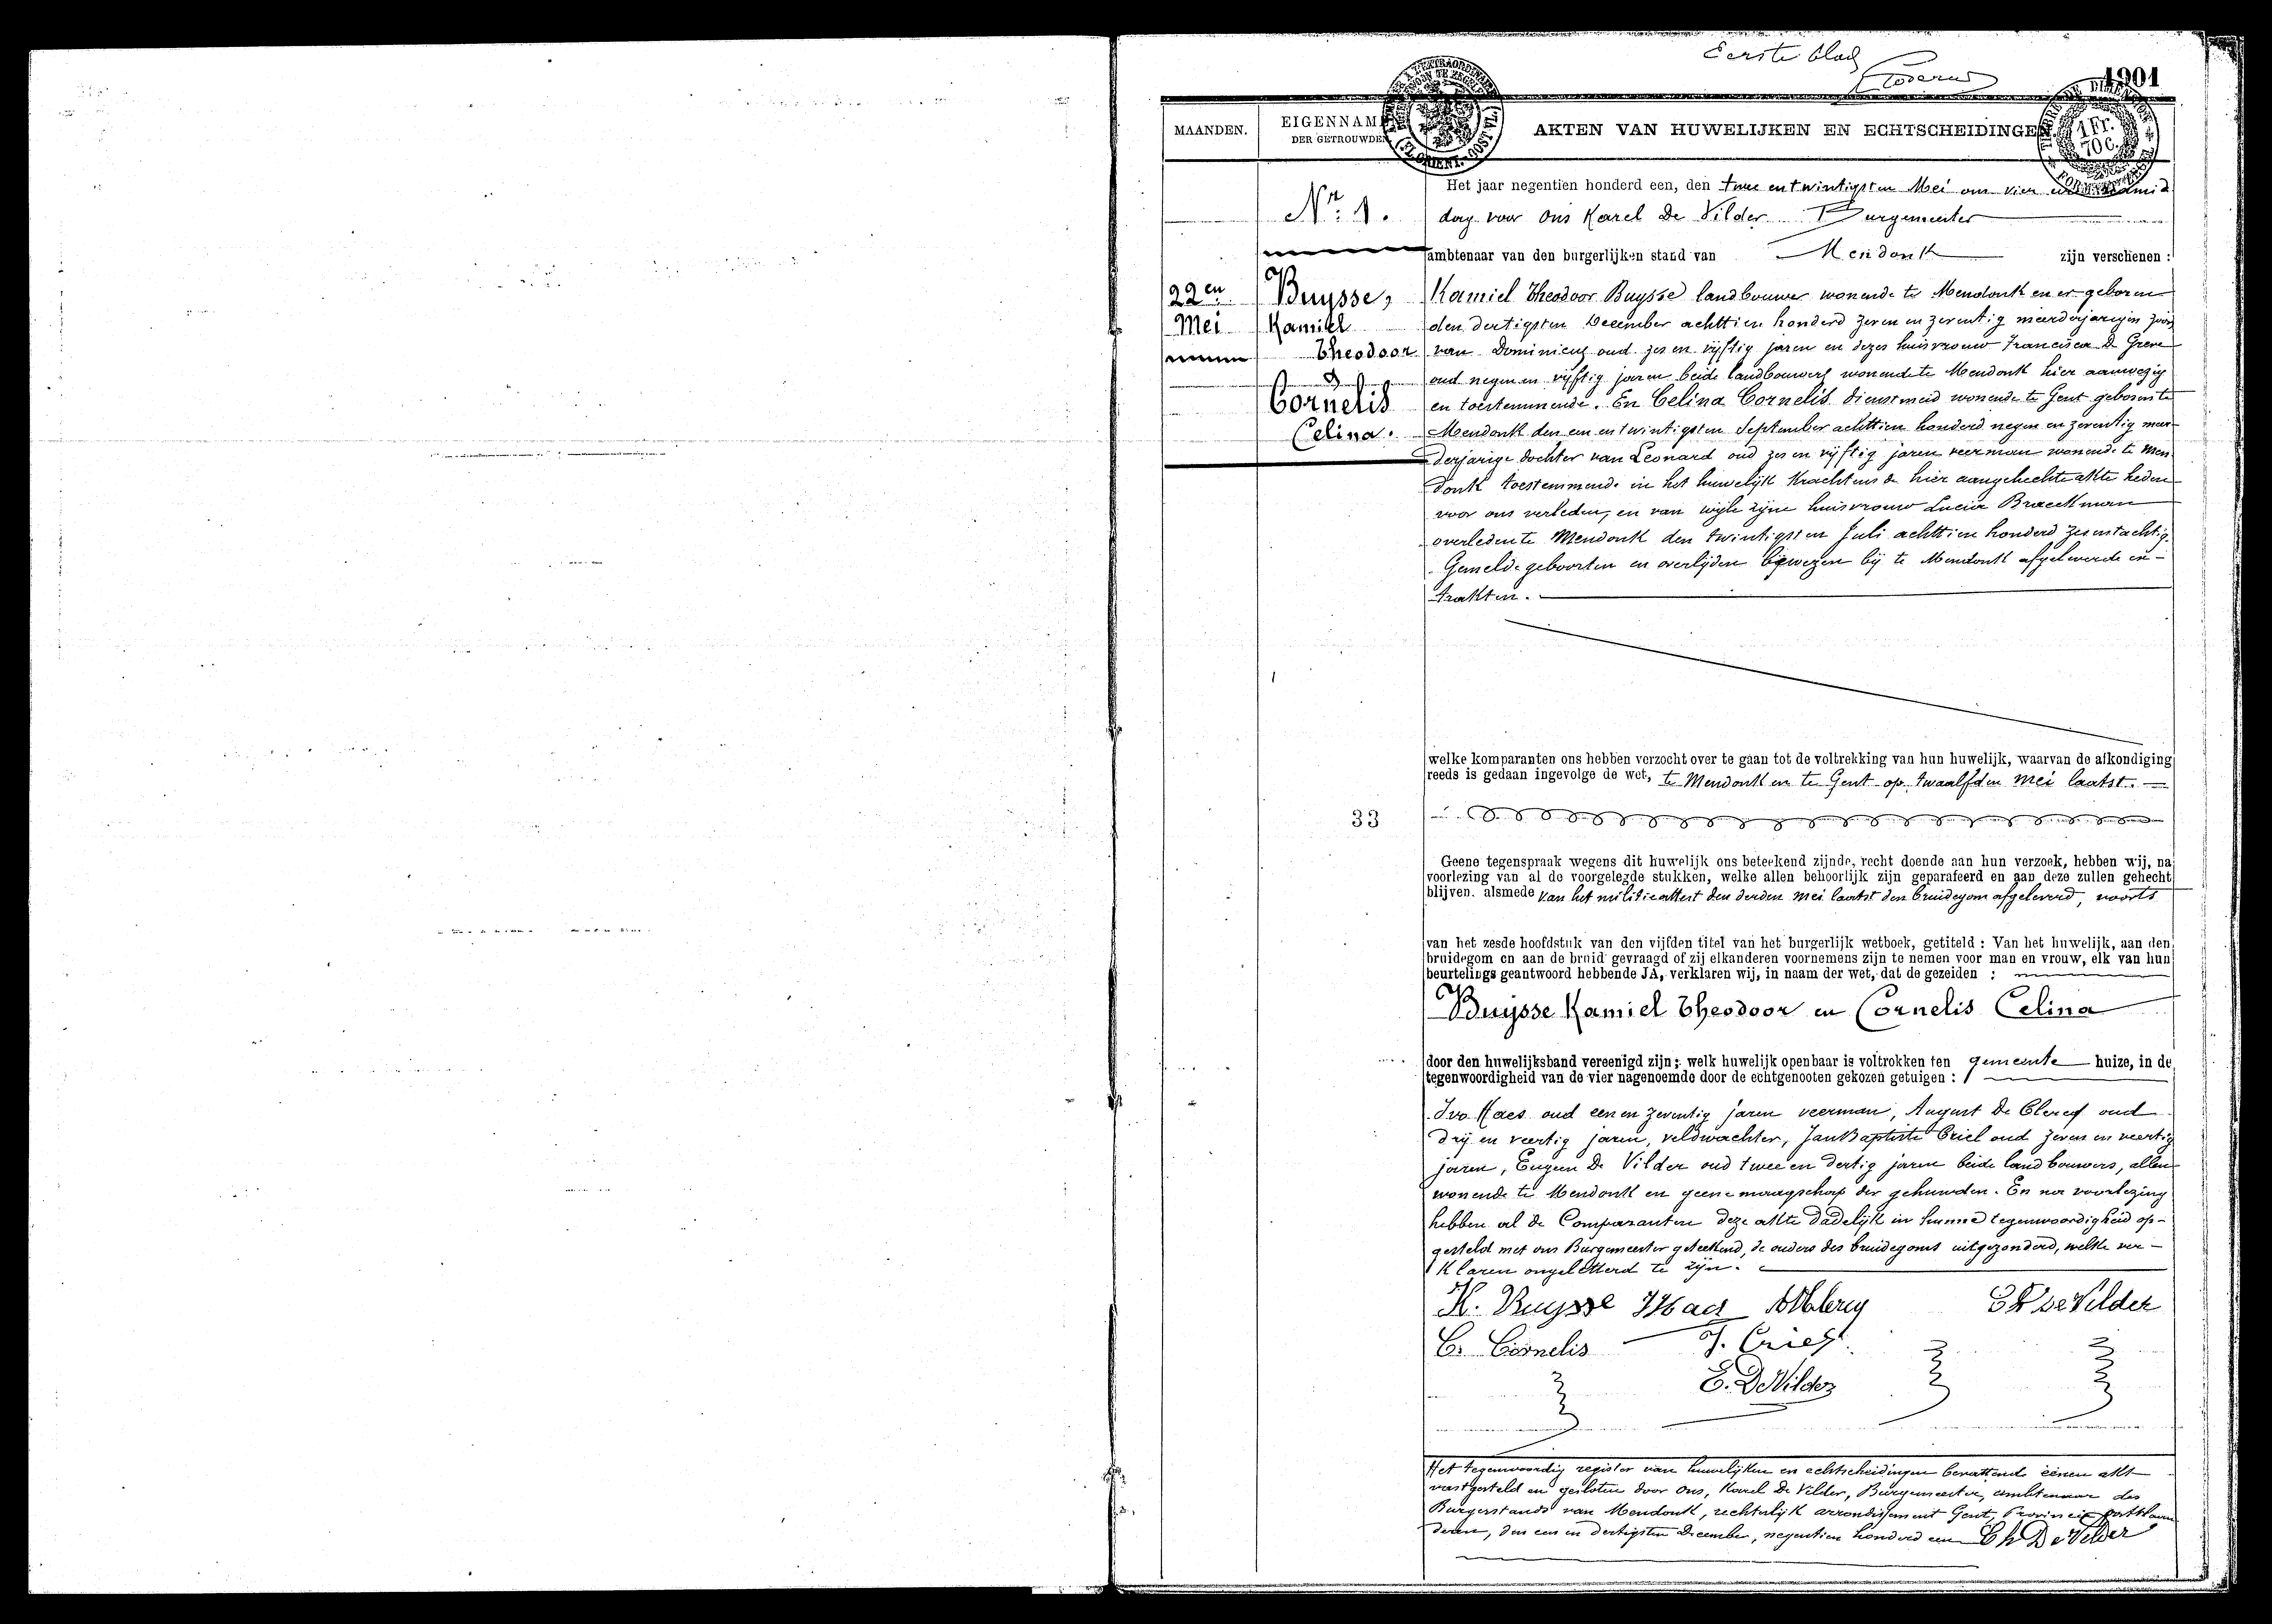 Eerste blad
1901
MAANDEN.
EIGENNAMEN
DER GETROUWDEN
AKTEN VAN HUWELIJKEN EN ECHTSCHEIDINGEN
TIMBRE DE DIMENSION
1 Fr.
70 C.
Het jaar negentien honderd een, den twee en twintigsten Mei om vier
Nr. 1.
dag voor ons Karel De Vilder Burgemeester
ambtenaar van den burgerlijken stand van Mendonk zijn verschenen :
22en
Mei
Buysse,
Kamiel
Theodoor
&
Cornelis
Celina.
Kamiel Theodoor Buysse landbouwer wonende te Mendonk en er geboren
den dertigsten December achttien honderd zeven en zeventig meerderjarigen zoon
van Dominicus oud zes en vijftig jaren en dezes huisvrouw Francisca De Greve
oud negen en vijftig jaren beide landbouwers wonende te Mendonk hier aanwezig
en toestemmende. En Celina Cornelis dienstmeid wonende te Gent geboren te
Mendonk den een en twintigsten September achttien honderd negen en zeventig meer-
derjarige dochter van Leonard oud zes en vijftig jaren veerman wonende te Men
donk toestemmende in het huwelijk krachtens de hier aangehechte akte heden
voor ons verleden, en van wijle zijne huisvrouw Lucia Braeckman
overleden te Mendonk den twintigsten Juli achttien honderd zes en tachtig.
Gemelde geboorten en overlijden bewezen bij te Mendonk afgeleverde ex-
trakten.
welke komparanten ons hebben verzocht over te gaan tot de voltrekking van hun huwelijk, waarvan de afkondiging
reeds is gedaan ingevolge de wet, te Mendonk en te Gent op twaalfden Mei laatst.
33
Geene tegenspraak wegens dit huwelijk ons beteekend zijnde, recht doende aan hun verzoek, hebben wij, na
voorlezing van al de voorgelegde stukken, welke allen behoorlijk zijn geparafeerd en aan deze zullen gehecht
blijven. alsmede van het militieattest den derden Mei laatst den bruidegom afgeleverd, voorts
van het zesde hoofdstuk van den vijfden titel van het burgerlijk wetboek, getiteld : Van het huwelijk, aan den
bruidegom en aan de bruid gevraagd of zij elkanderen voornemens zijn te nemen voor man en vrouw, elk van hun
beurtelings geantwoord hebbende JA, verklaren wij, in naam der wet, dat de gezeiden :
Buysse Kamiel Theodoor en Cornelis Celina
door den huwelijksband vereenigd zijn; welk huwelijk openbaar is voltrokken ten gemeente huize, in de
tegenwoordigheid van de vier nagenoemde door de echtgenooten gekozen getuigen :
Ivo Haes oud een en zeventig jaren veerman, August De Clercq oud
drij en veertig jaren, veldwachter, Jan Baptiste Criel oud zeven en veertig
jaren, Eugeen De Vilder oud twee en dertig jaren beide landbouwers, allen
wonende te Mendonk en geene maagschap der gehuwden. En na voorlezing
hebben al de Comparanten deze akte dadelijk in hunne tegenwoordigheid op-
gesteld met ons Burgemeester geteekend, de ouders des bruidegoms uitgezonderd, welke ver-
klaren ongeletterd te zijn.
K. Buysse I Haes
Ch De Vilder
C. Cornelis J. Criel
E. De Vilder
Het tegenwoordig register van huwelijken en echtscheidingen bevattende éénen akt
vastgesteld en gesloten door ons, Karel De Vilder, Burgemeester, ambtenaar des
Burgerstands van Mendonk, rechterlijk arrondissement Gent, Provincie Oostvlaan
deren, den een en dertigsten December, negentien honderd een Ch De Vilder